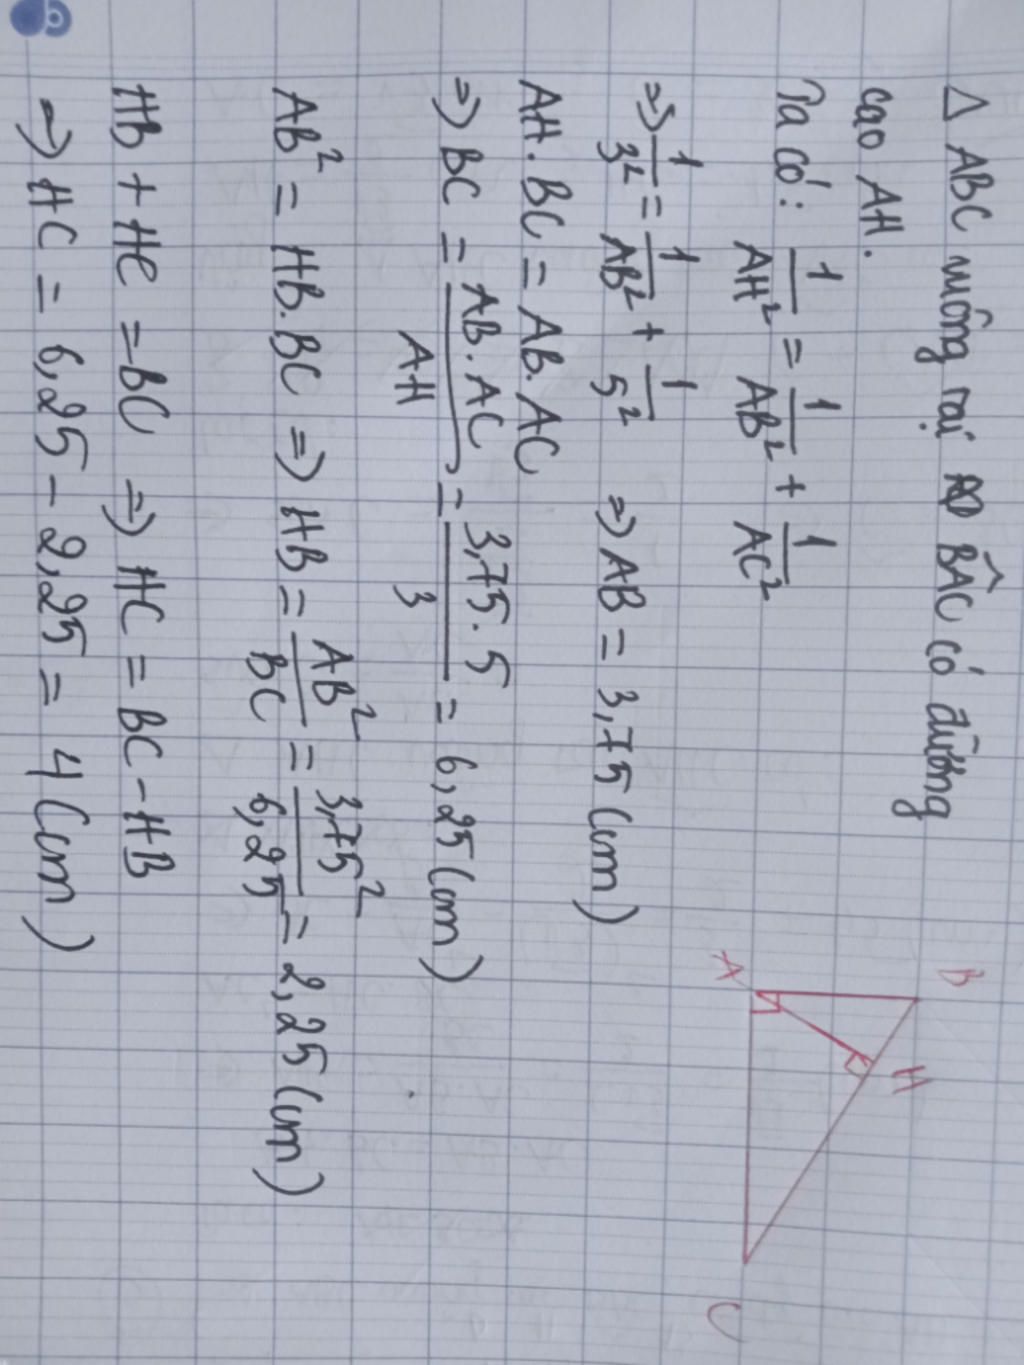 Δ ABC vuông tại BÂC có đường
cao AH.
Ta có: 1/AH² = 1/AB² + 1/AC²
=> 1/3² = 1/AB² + 1/5² => AB = 3,75 (cm)
AH.BC = AB.AC
=> BC = AB.AC/AH = 3,75.5/3 = 6,25 (cm)
AB² = HB.BC => HB = AB²/BC = 3,75²/6,25 = 2,25 (cm)
HB + HC = BC => HC = BC - HB
=> HC = 6,25 - 2,25 = 4 (cm)
B
A
H
C